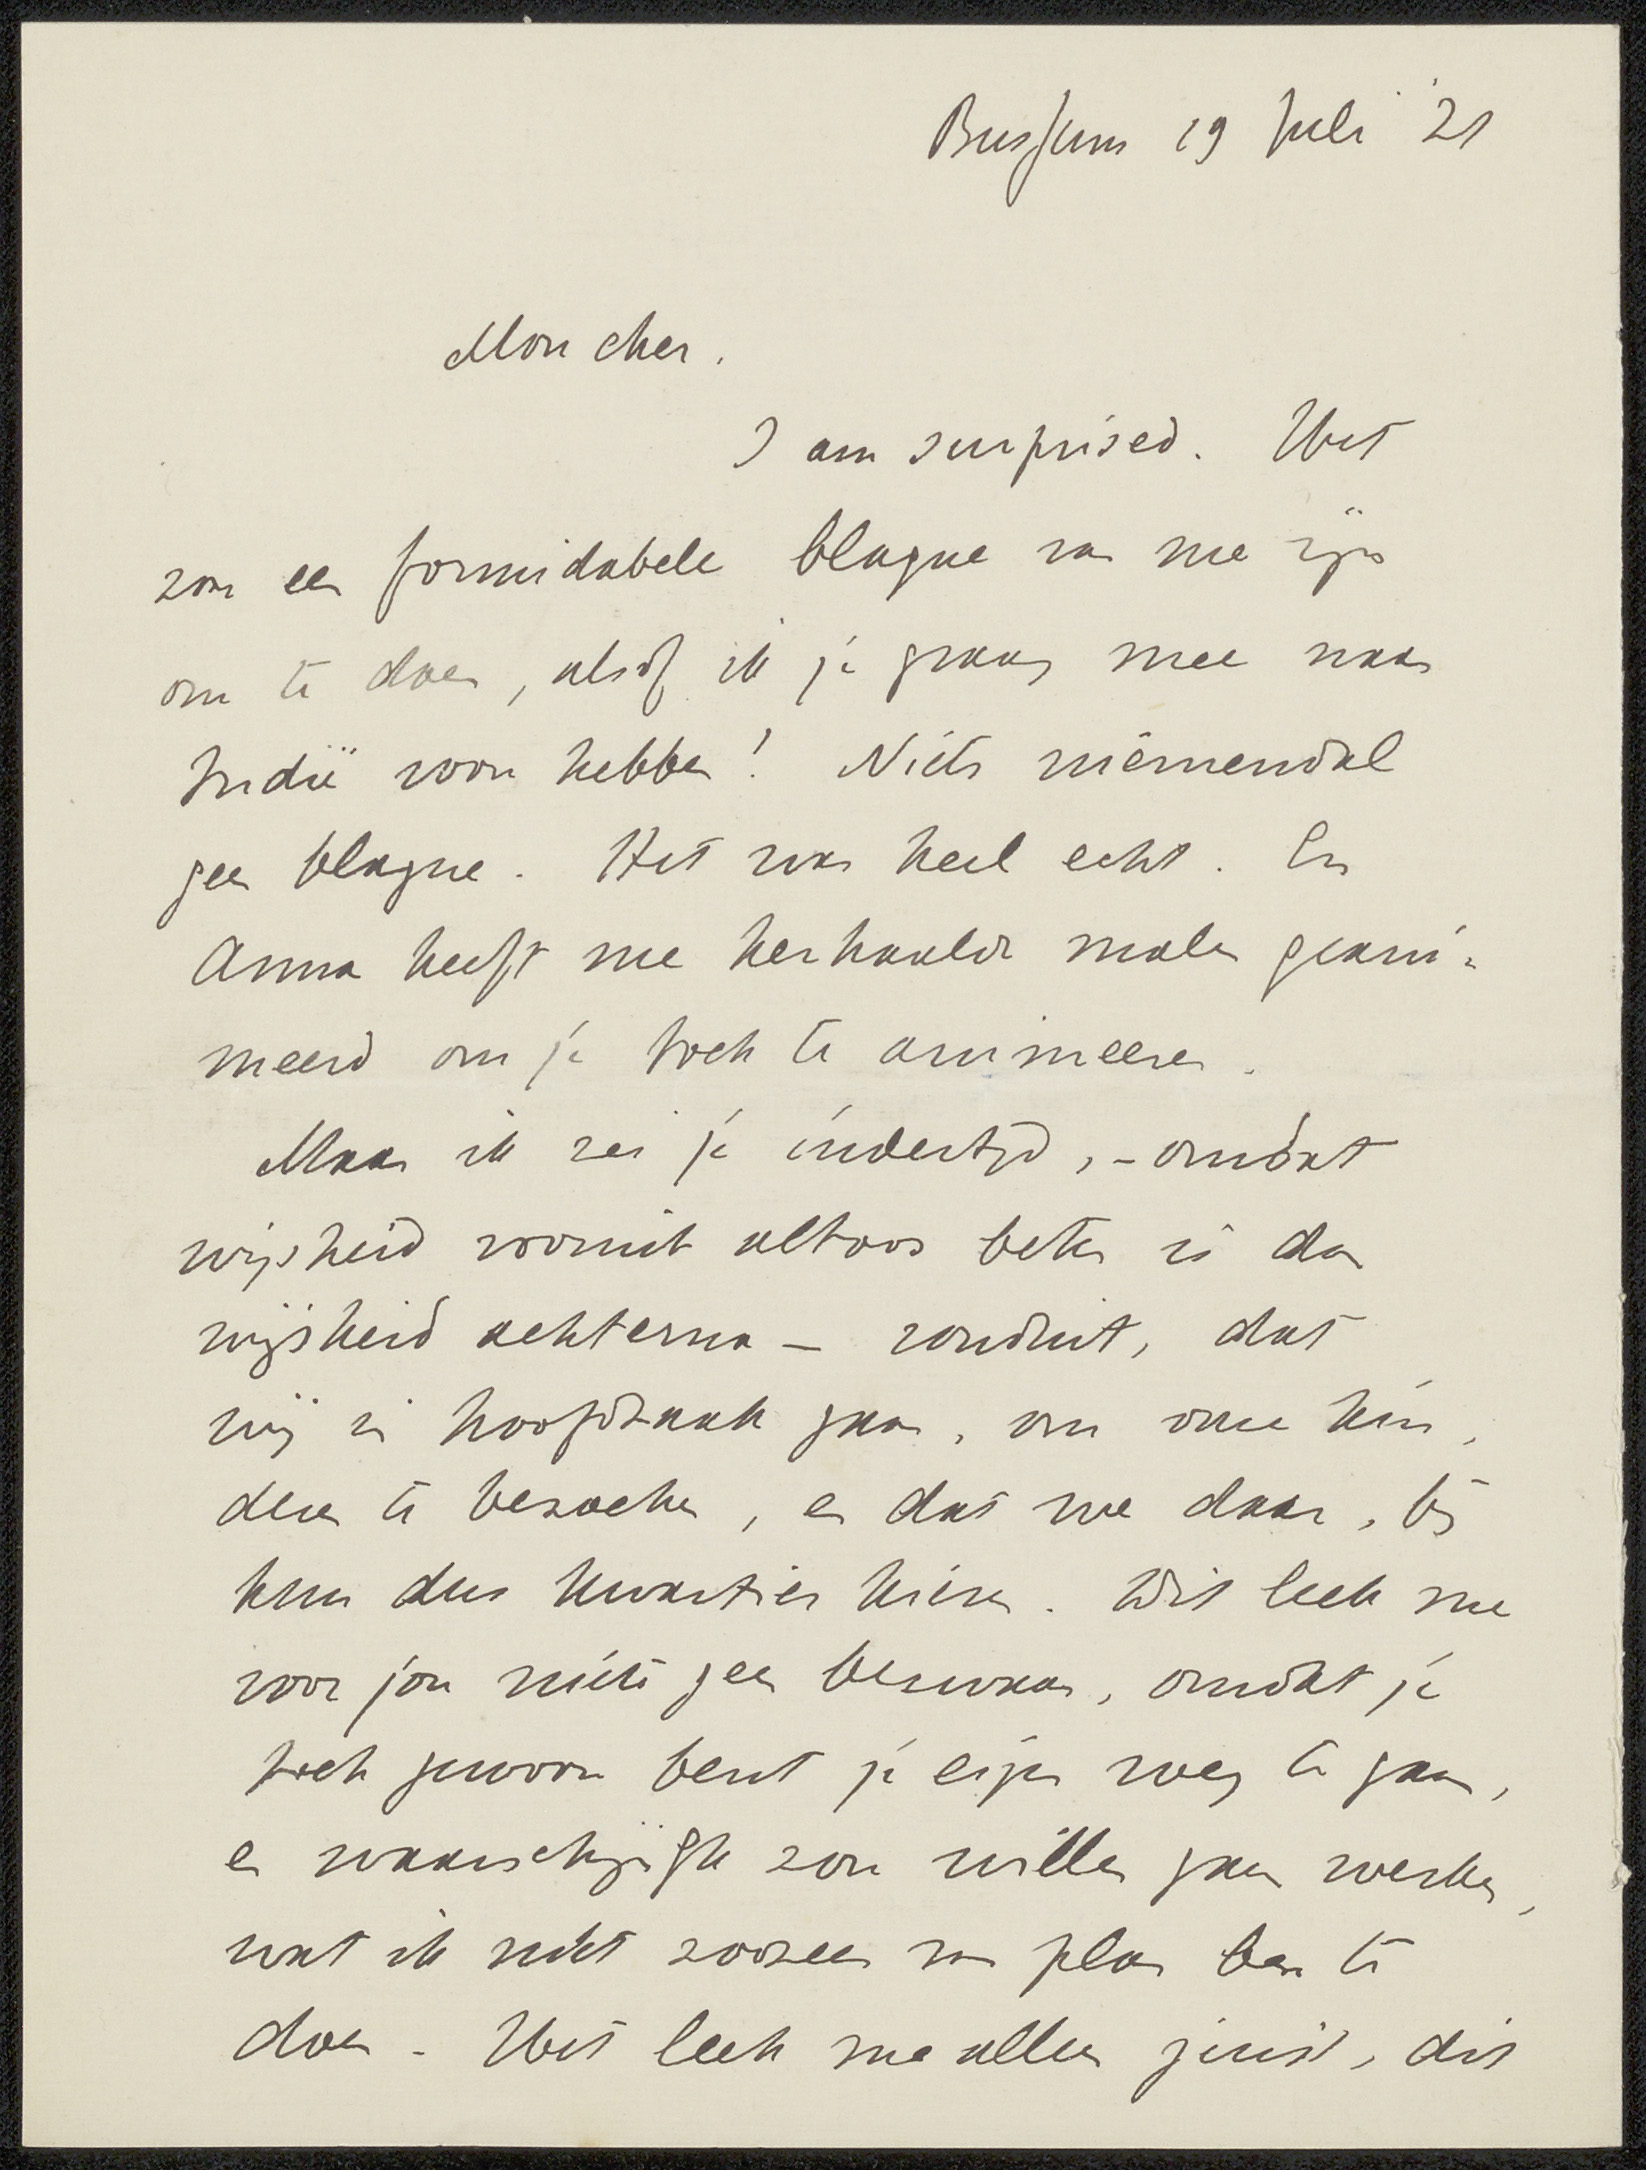 Bussum 19 Juli '21
Mon cher.
I am surprised. Het
zou een formidabele blague van me zijn
om te doen, alsof ik je graag mee naar
Indië wou hebben! Niets niemendal
geen blague. Het was heel echt. En
Anna heeft me herhaalde malen geani-
meerd om je toch te animeeren.
Maar ik zei je indertijd, - omdat
wijsheid vooruit altoos beter is dan
wijsheid achterna - ronduit, dat
wij in hoofdzaak gaan, om onze kin-
deren te bezoeken, en dat we daar, bij
hun dus kwartier kiezen. Dit leek me
voor jou niets geen bezwaar, omdat je
toch gewoon bent je eigen weg te gaan,
en waarschijnlijk zou willen gaan werken,
wat ik niet zoozeer van plan ben te
doen. Het leek me alleen juist, dit